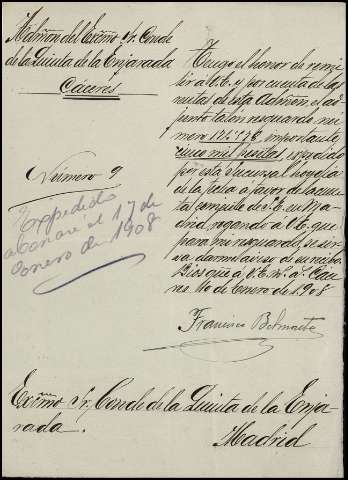 Admón del Excmo Sr. Conde
de la Quinta de la Enjarada
Cáceres
Número 9
Expedido
el 17 de
Enero de 1908
Tengo el honor de remi
tir á V.E. y por cuenta de las
rentas de esta Admón el ad
junto talon resguardo nú
mero importante
cinco mil pesetas expedido
por esta Sucursal hoy dia
de la fecha a favor de la cuen
ta de V.E. en Ma
drid, rogando á V.E. que
para mi resguardo, se sir
va darme aviso de su recibo
Dios gue á V.E. m. a. Cáce
res 16 de Enero de 1908
Francisco Belmonte
Excmo Sr. Conde de la Quinta de la Enja
rada.
Madrid